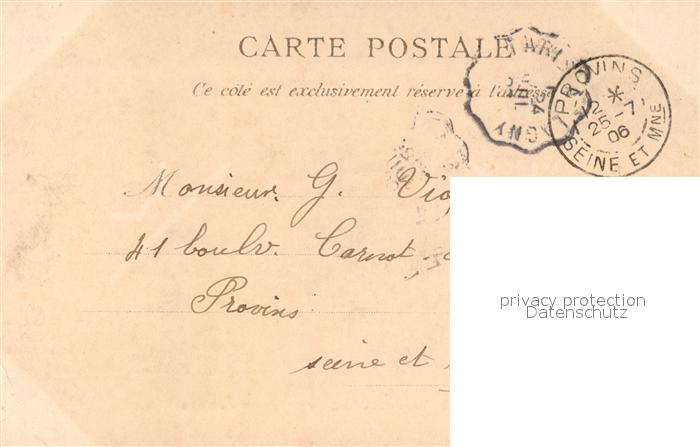 CARTE POSTALE
Ce côté est exclusivement réservé à l'adresse
PROVINS
*
25 -7
06
SEINE ET MNE
GNY
Monsieur. G.
41 boulv. Carnot
Provins
seine et
privacy protection
Datenschutz